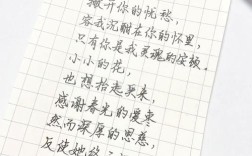 撇开你的忧愁，
容我沉酣在你的怀里，
只有你是我灵魂的安顿。
小小的花，
也想抬起头来，
感谢春光的爱——
然而深厚的恩慈，
反使她终于